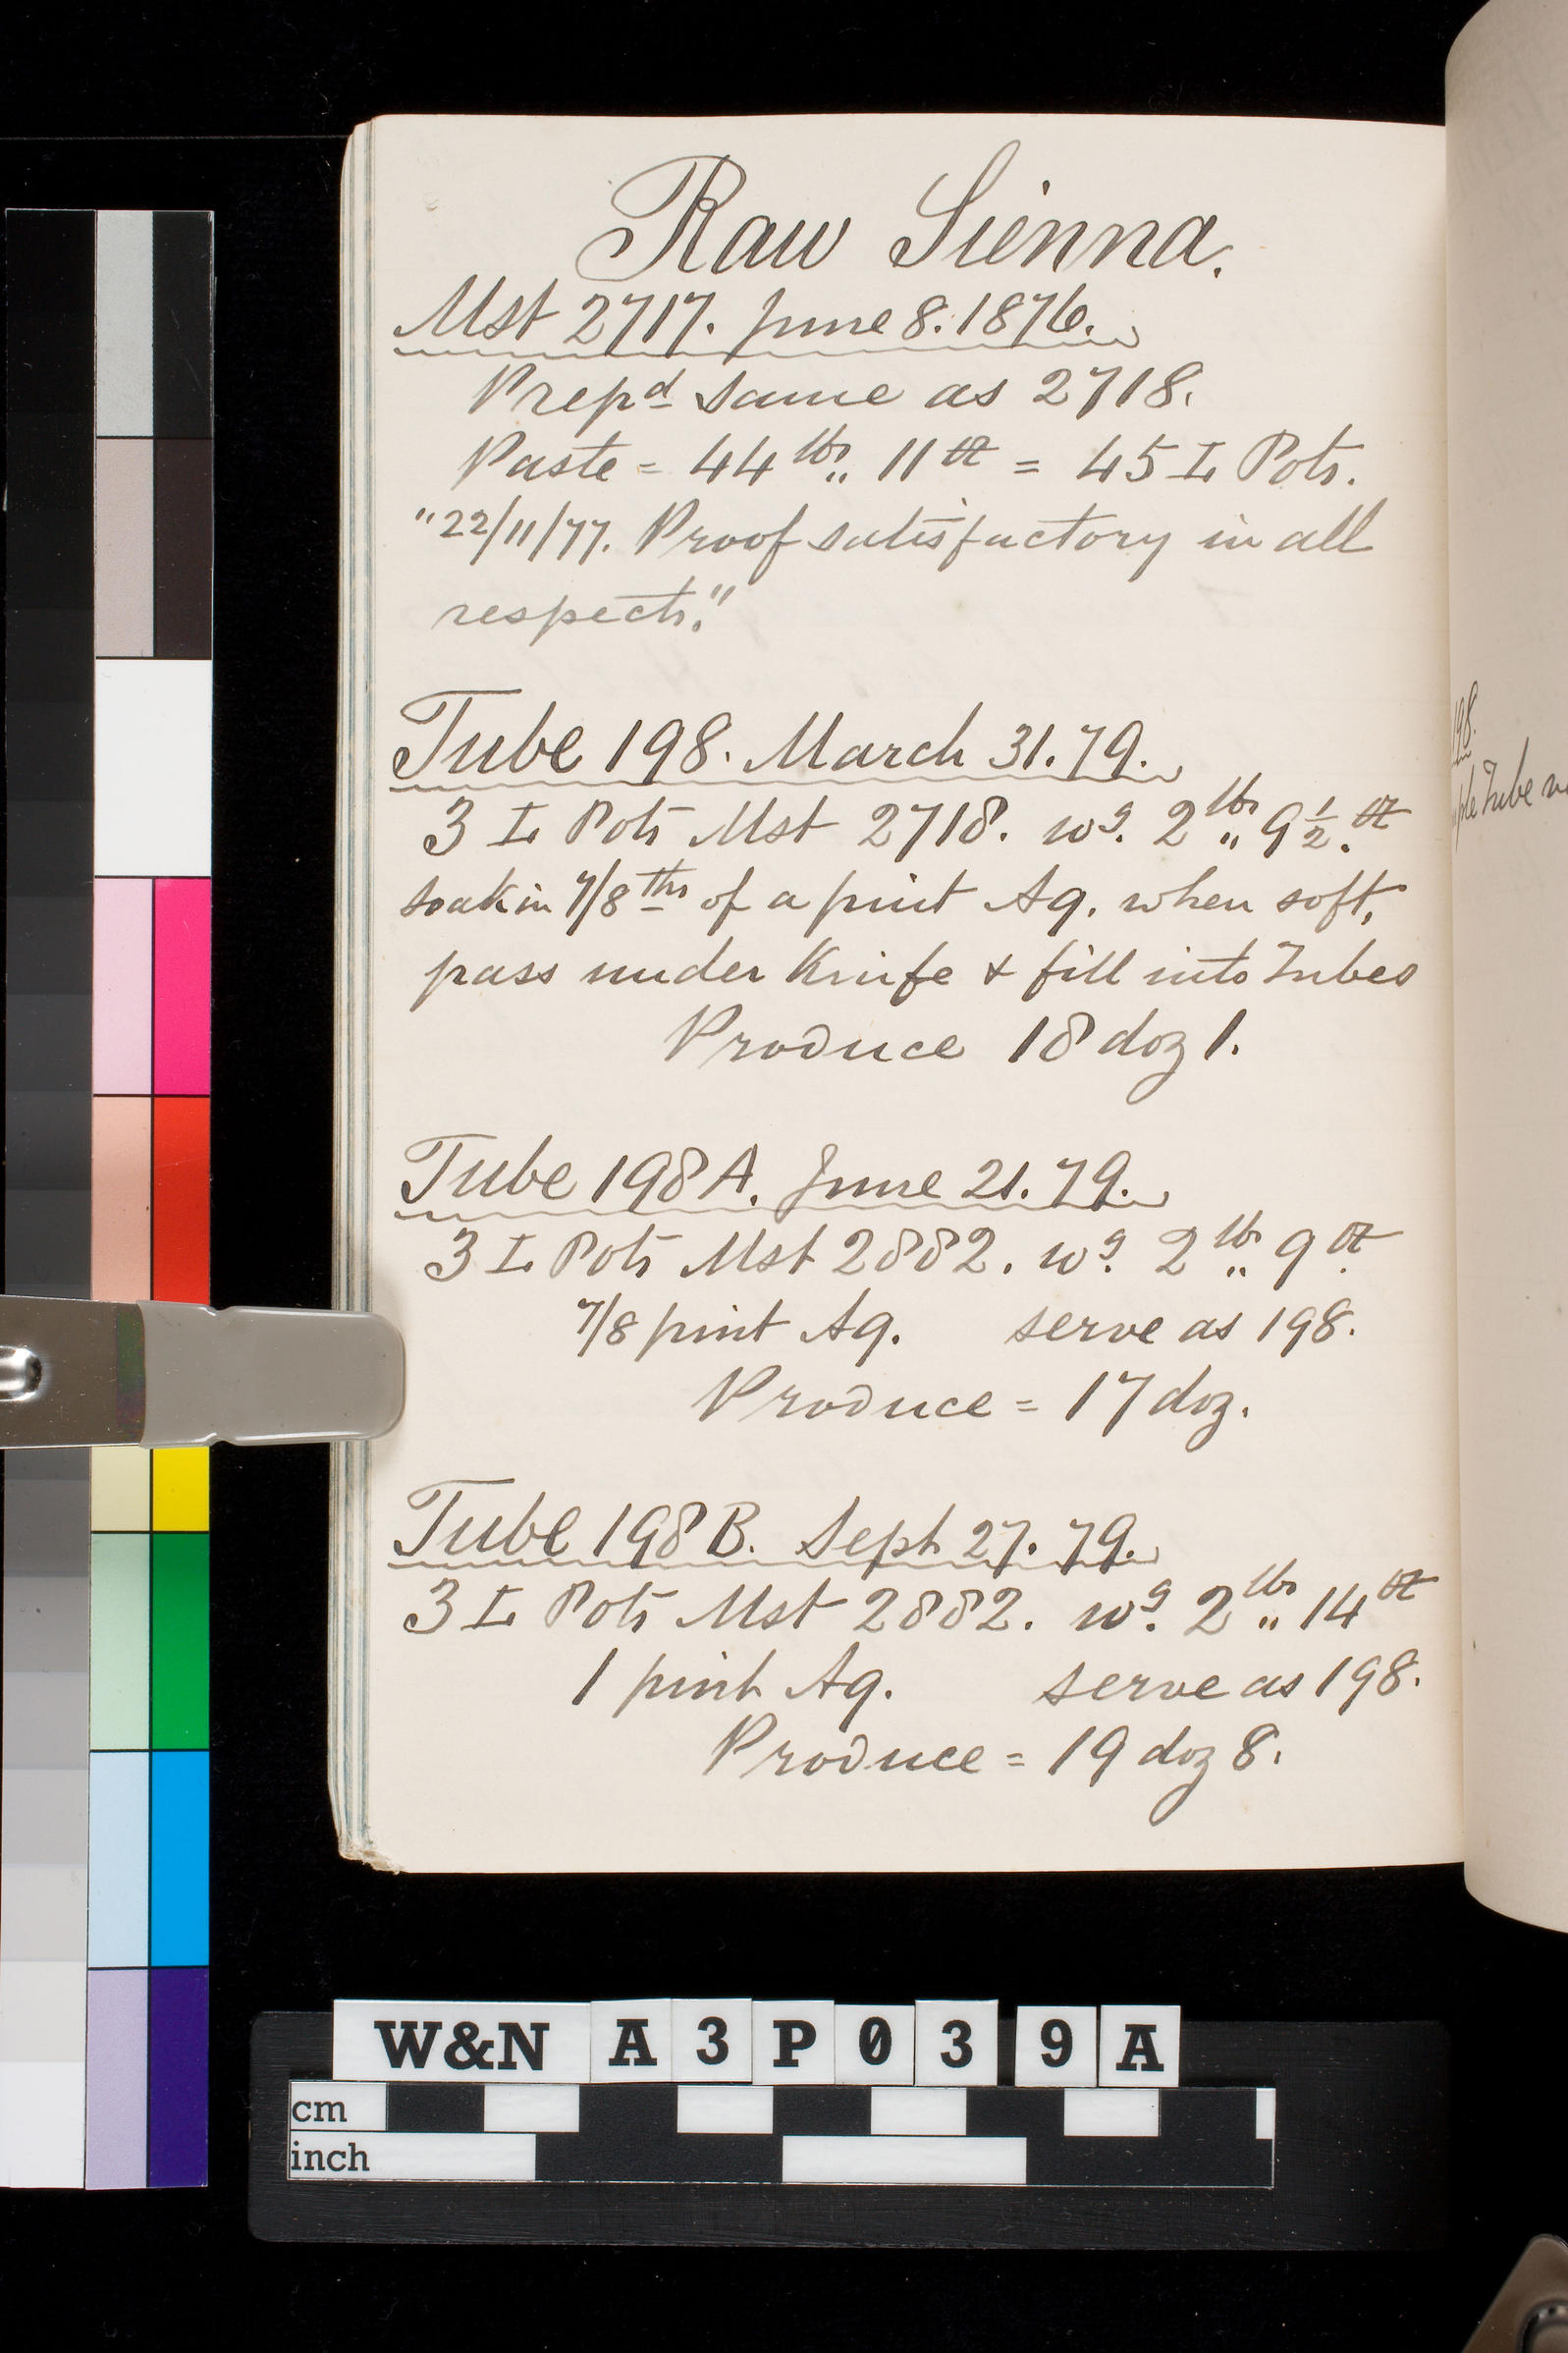 Raw Sienna.
Mst 2717. June 8. 1876.
Prepd same as 2718.
Paste = 44 lbs „ 11 oz = 45 L Pots.
"22/11/77. Proof satisfactory in all
respects."
Tube 198. March 31. 79.
3 L Pots Mst 2718. wg. 2 lbs „ 9 1/2. oz
soak in 7/8ths of a pint Aq. when soft,
pass under Knife & fill into Tubes
Produce 18 doz 1.
Tube 198 A. June 21. 79.
3 L Pots Mst 2882. wg. 2 lbs „ 9 oz.
7/8 pint Aq. serve as 198.
Produce = 17 doz.
Tube 198 B. Sept 27. 79.
3 L Pots Mst 2882. wg. 2 lbs „ 14 oz
1 pint Aq. serve as 198.
Produce = 19 doz 8.
198.
Tube
W&N A3P039A
cm
inch